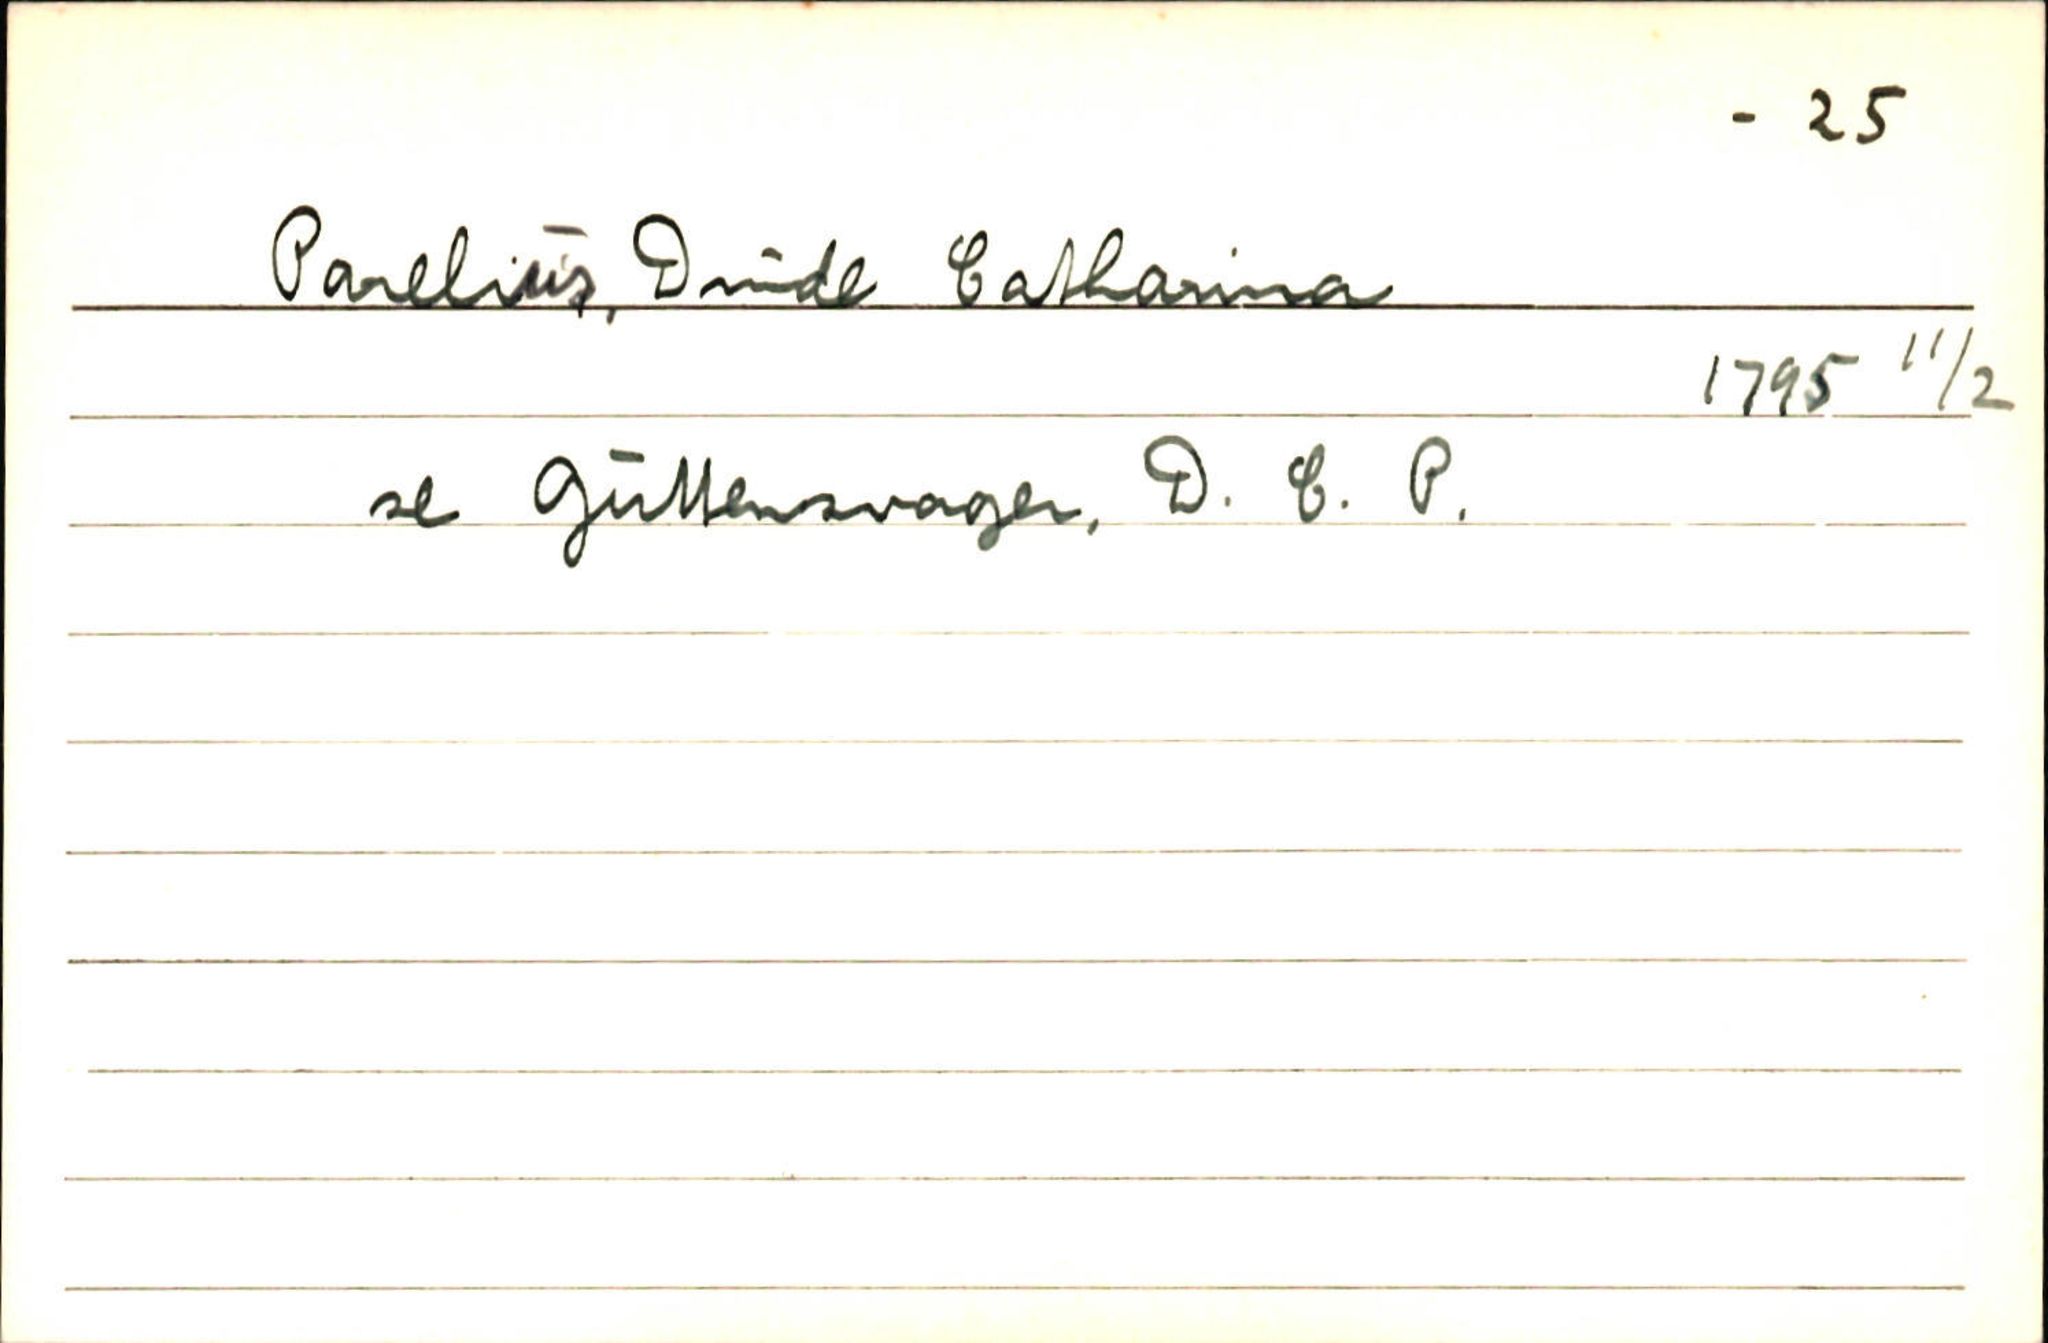 - 25
Parelius, Drude Catharina
1795 11/2
se Guttensvager, D. C. P.